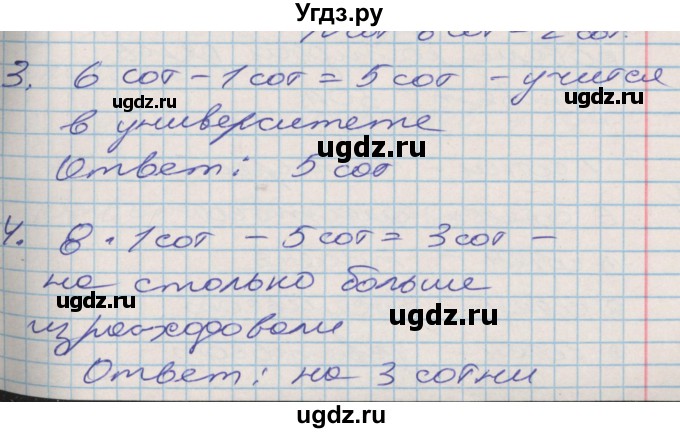 Угдз.ру
3. 6 сот - 1 сот = 5 сот - учится
ugdz.ru ugdz.ru
в университете
ugdz.ru
Ответ: 5 сот
ugdz.ru
4. 8 · 1 сот - 5 сот = 3 сот -
на столько больше
ugdz.ru ugdz.ru
израсходовали
Ответ: на 3 сотни
ugdz.ru